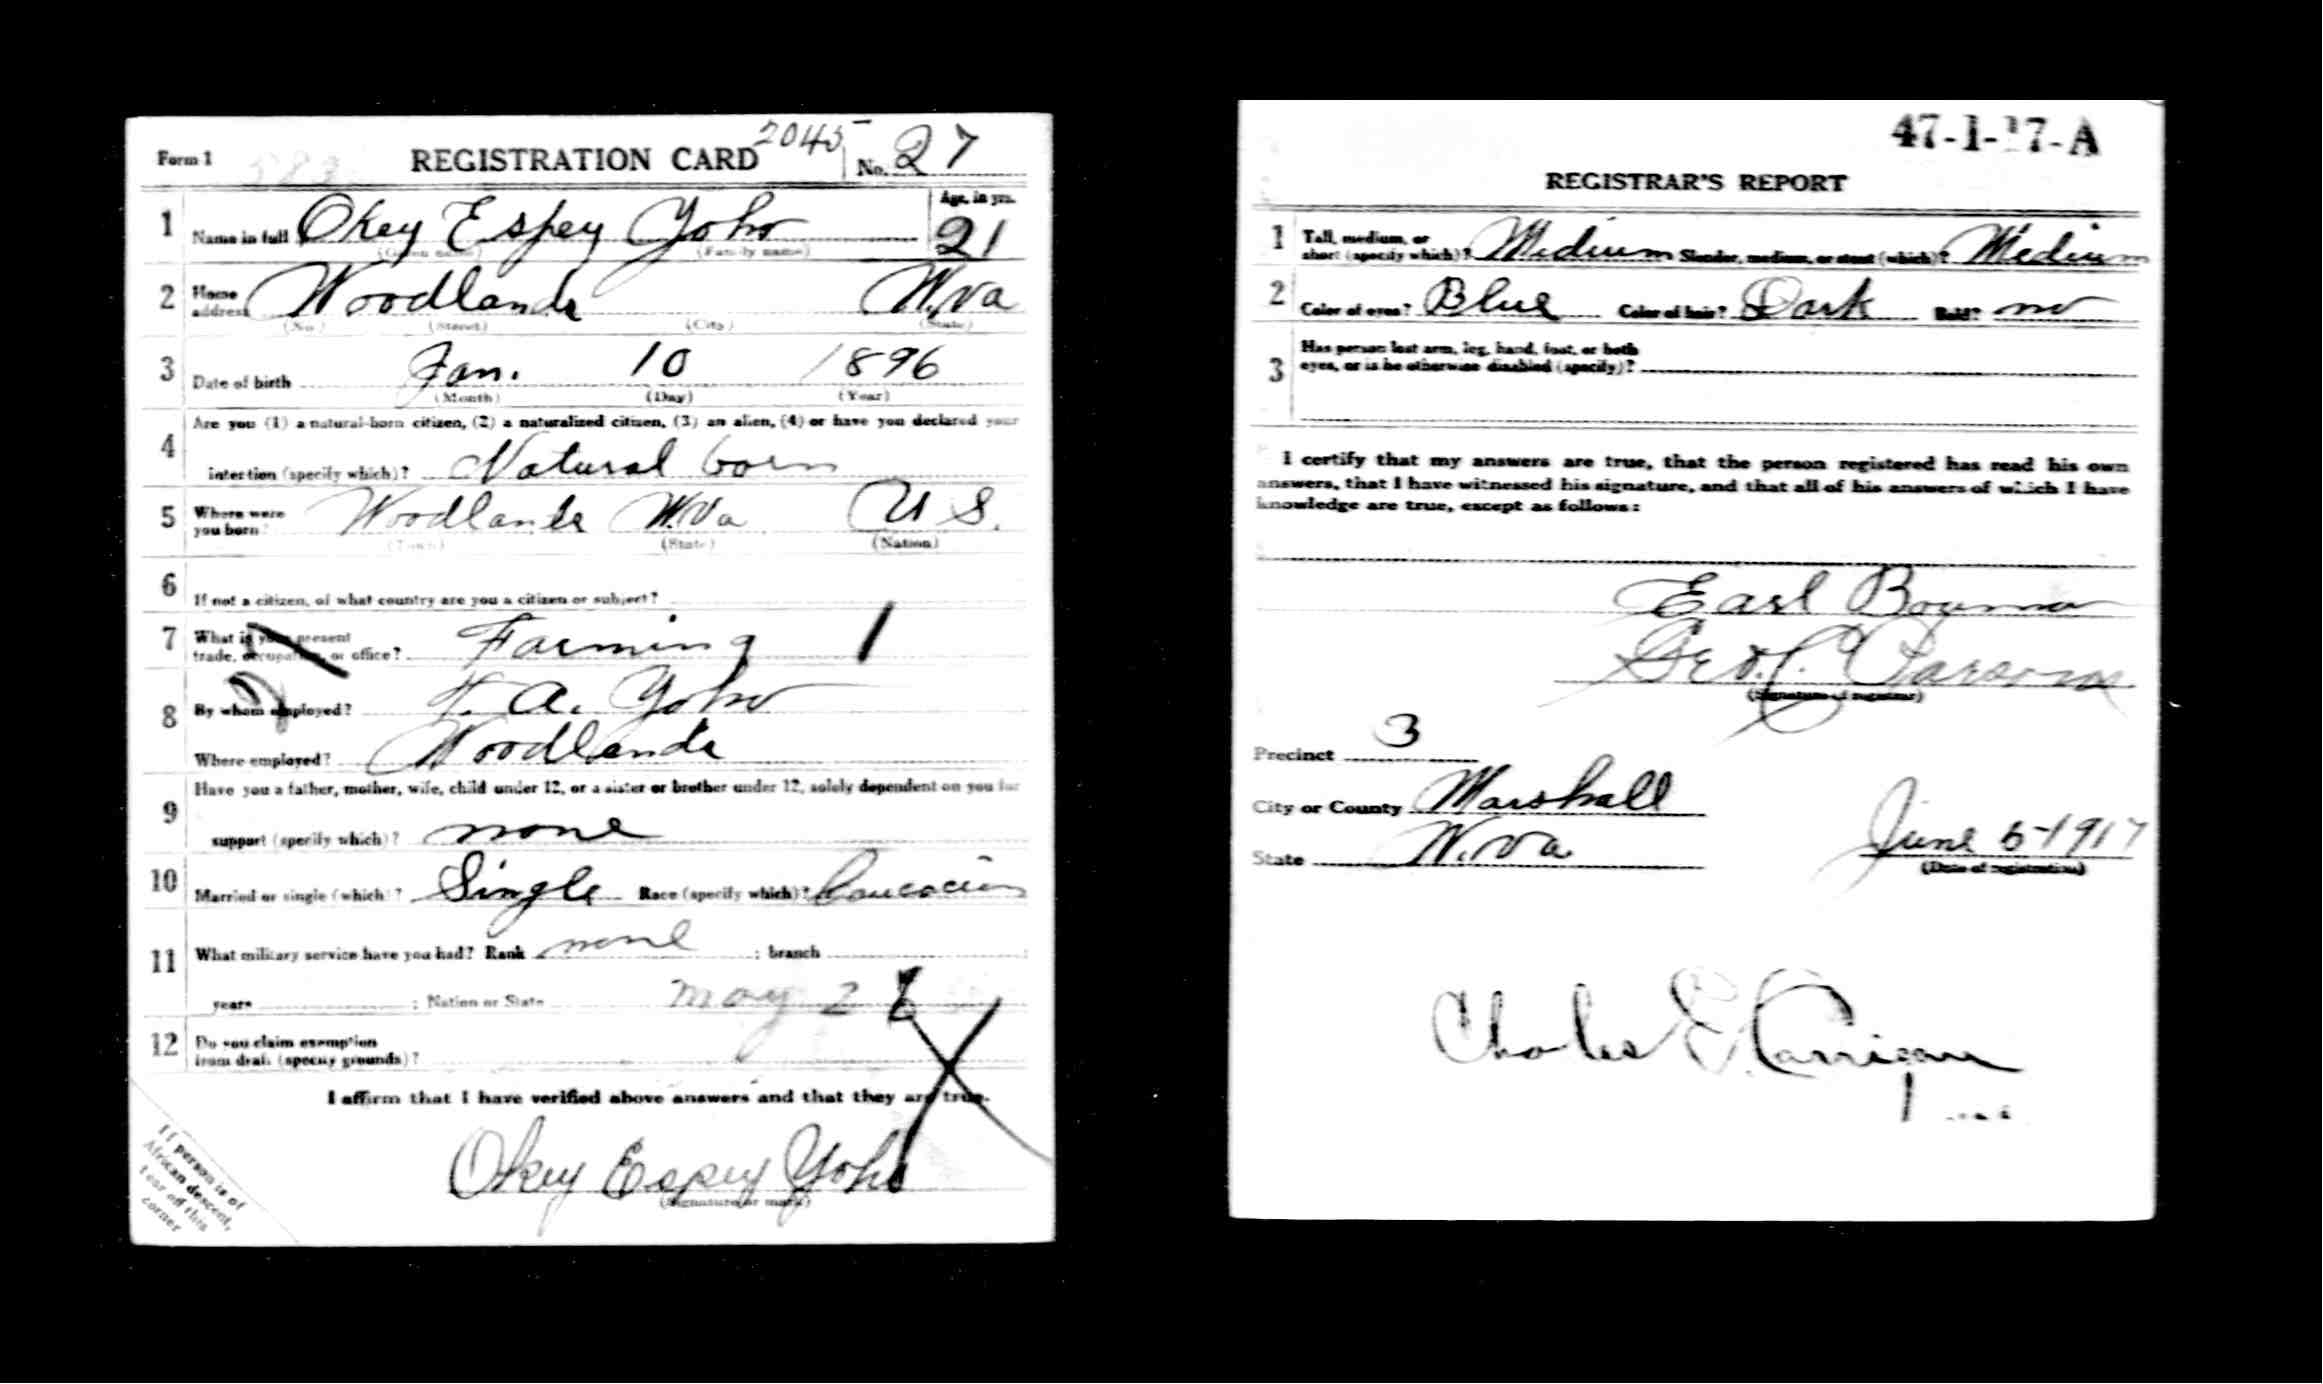 Form 1
REGISTRATION CARD
2045
No. 27
1 Name in full Okey Espey Yoho
(Given name) (Family name)
Age, in yrs.
21
2 Home address Woodlands W.Va
(No.) (Street) (City) (State)
3 Date of birth Jan. 10 1896
(Month) (Day) (Year)
4 Are you (1) a natural-born citizen, (2) a naturalized citizen, (3) an alien, (4) or have you declared your
intention (specify which)? Natural born
5 Where were you born? Woodlands W.Va U S.
(Town) (State) (Nation)
6 If not a citizen, of what country are you a citizen or subject?
7 What is your present
trade, occupation, or office? Farming 1
8 By whom employed? A. Yoho
Where employed? Woodlands
9 Have you a father, mother, wife, child under 12, or a sister or brother under 12, solely dependent on you for
support (specify which)? none
10 Married or single (which)? Single Race (specify which)? Caucacian
11 What military service have you had? Rank none ; branch
years ; Nation or State
May 2
12 Do you claim exemption
from draft (specify grounds)?
I affirm that I have verified above answers and that they are true.
Okey Espey Yoho
(Signature or mark)
If person is of
African descent,
tear off this
corner
47-1-17-A
REGISTRAR'S REPORT
1 Tall, medium, or
short (specify which)? Medium Slender, medium, or stout (which)? Medium
2 Color of eyes? Blue Color of hair? Dark Bald? no
3 Has person lost arm, leg, hand, foot, or both
eyes, or is he otherwise disabled (specify)?
I certify that my answers are true, that the person registered has read his own
answers, that I have witnessed his signature, and that all of his answers of which I have
knowledge are true, except as follows:
Earl Bowman
Geo. C. Parsons
(Signature of registrar)
Precinct 3
City or County Marshall
State W.Va
June 5-1917
(Date of registration)
Charles E. Carrigan